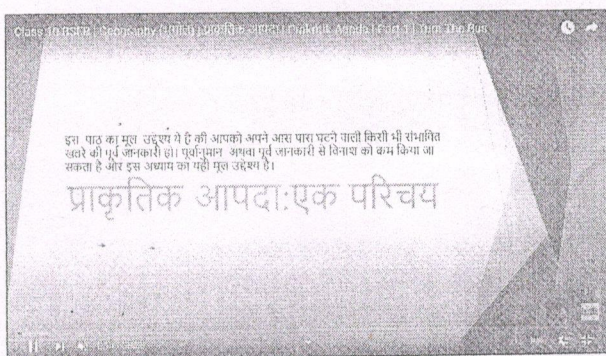 Class 10 BSEB | Geography (भूगोल) | प्राकृतिक आपदा | Prakritik Aapda | Part 1 | Turn The Bus
इस पाठ का मूल उद्देश्य ये है की आपको अपने आस पास घटने वाली किसी भी संभावित
खतरे की पूर्व जानकारी हो। पूर्वानुमान अथवा पूर्व जानकारी से विनाश को कम किया जा
सकता है और इस अध्याय का यही मूल उद्देश्य है।
प्राकृतिक आपदा:एक परिचय